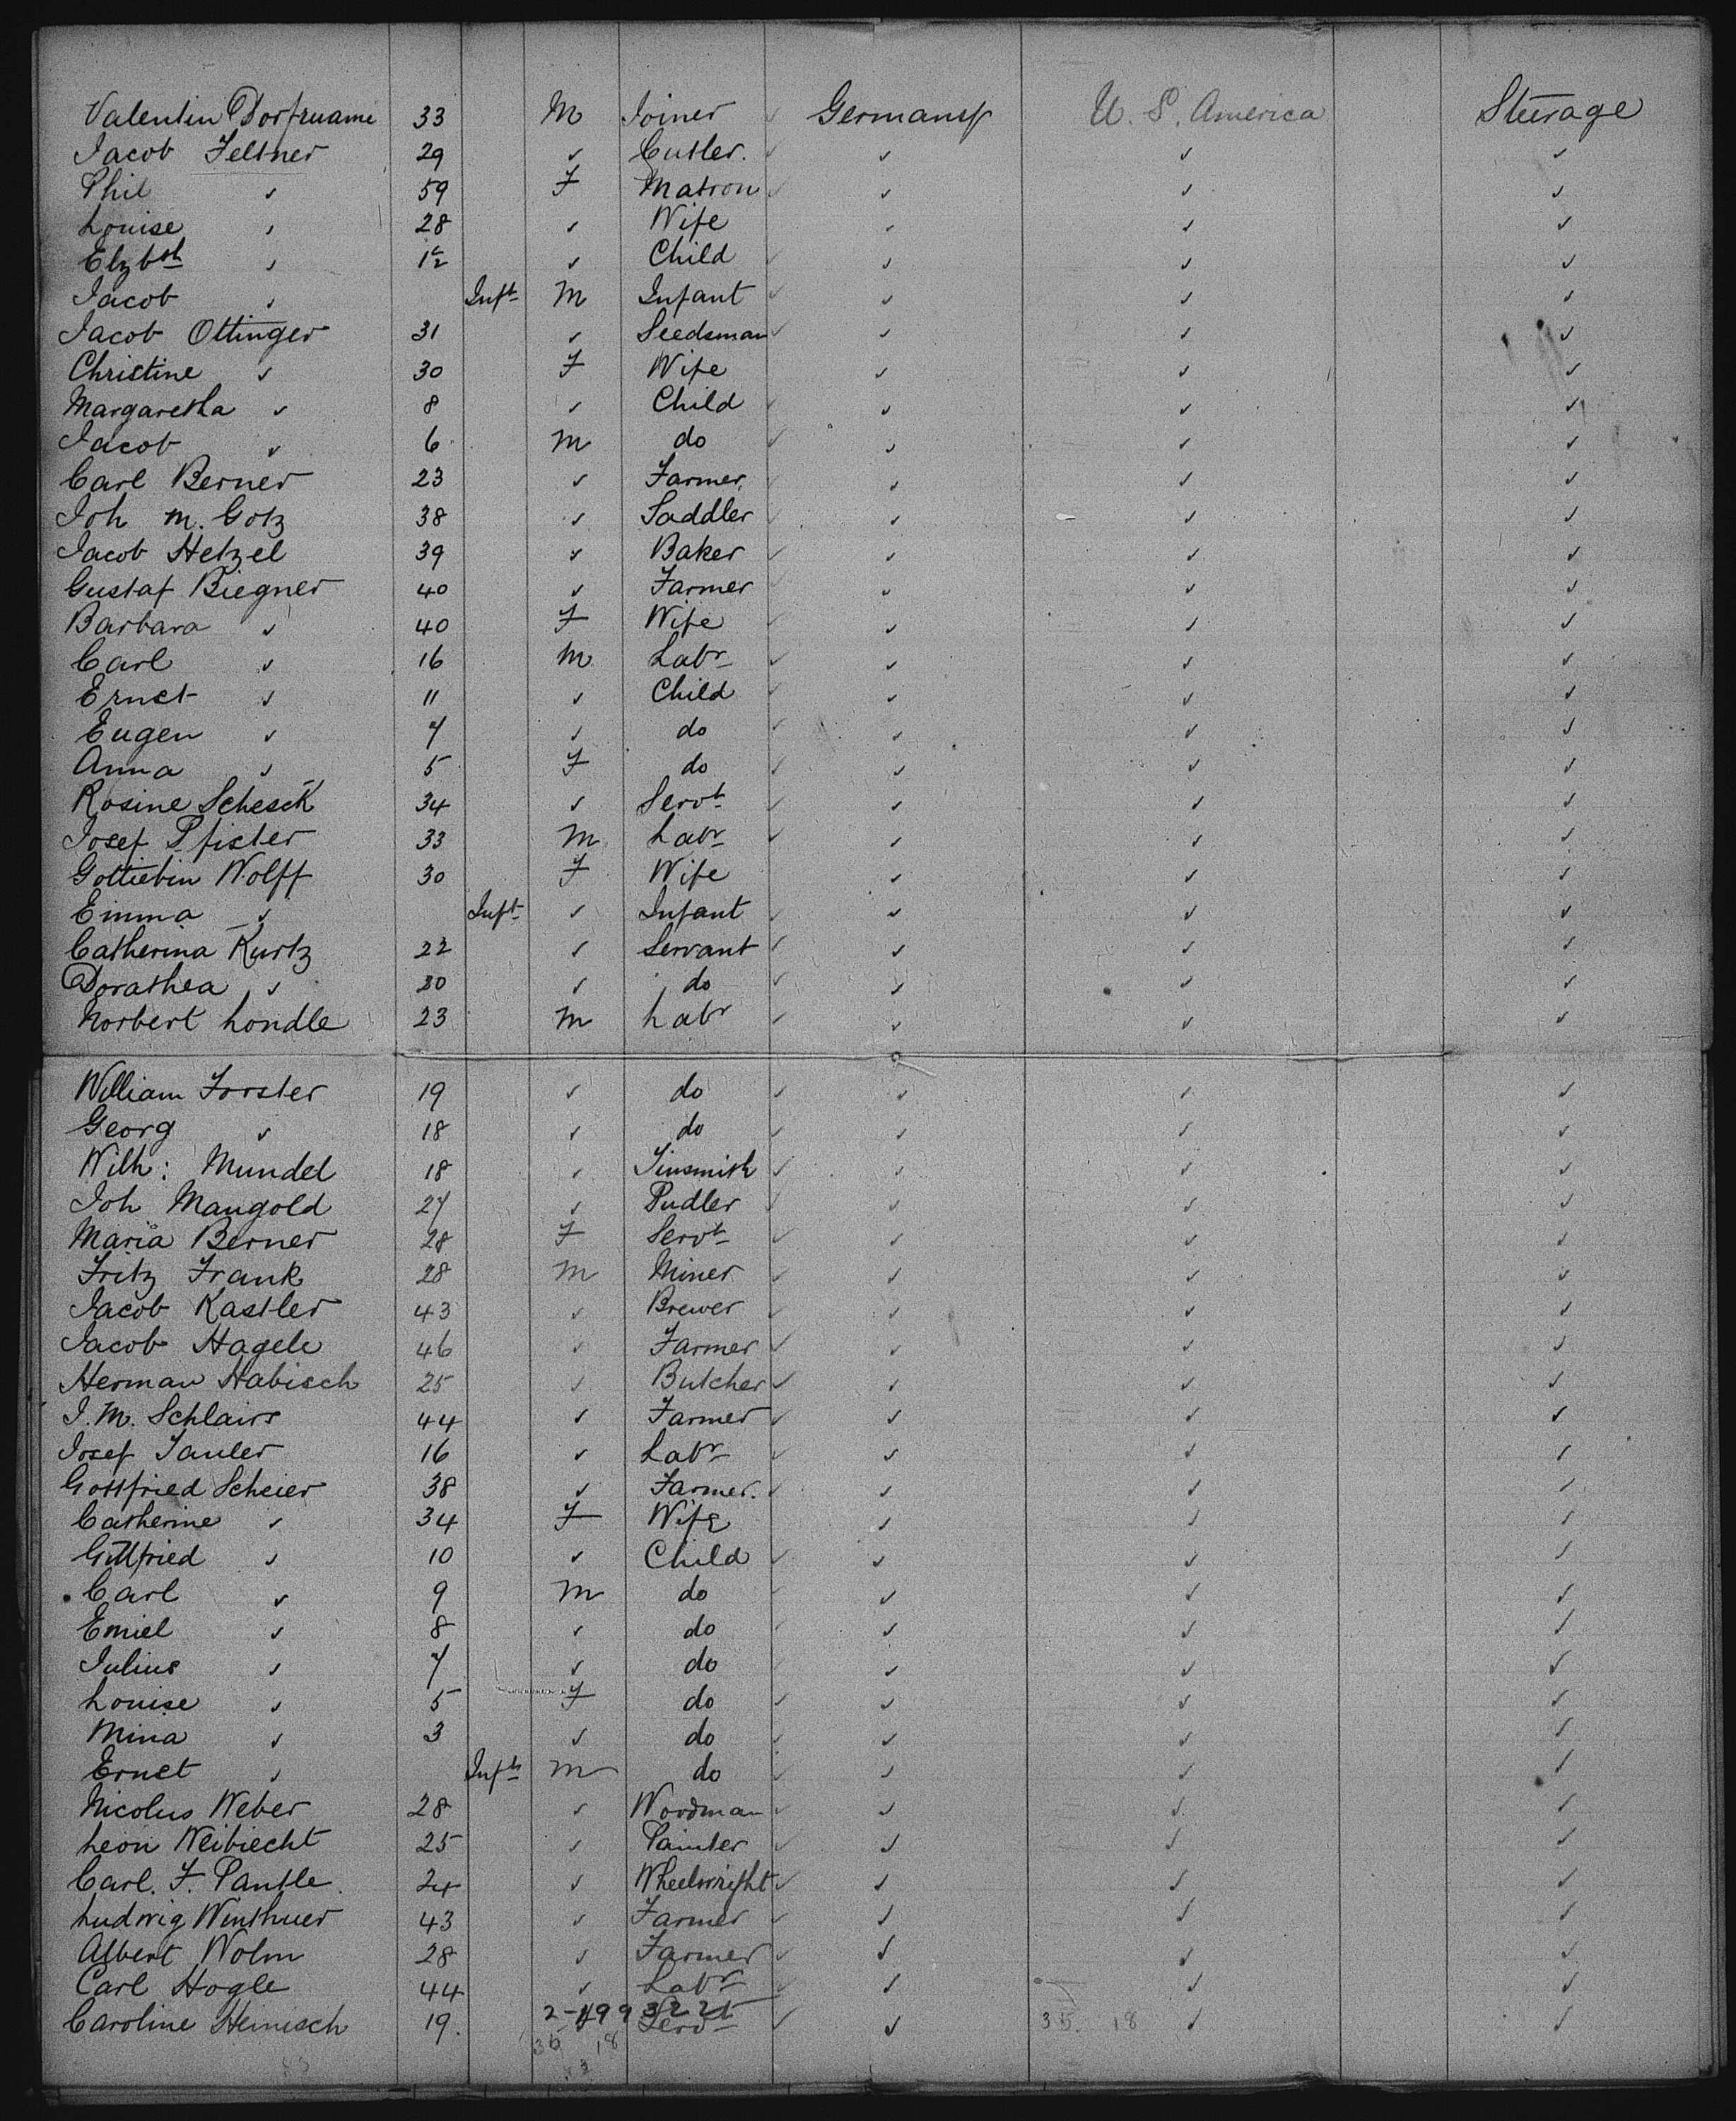 Valentin Dorfruame 33 M Joiner ✓ Germany U. S. America Steerage
Jacob Feltner 29 ✓ Cutler. ✓ ✓ ✓ ✓
Phil ✓ 59 F Matron ✓ ✓ ✓ ✓
Louise ✓ 28 ✓ Wife ✓ ✓ ✓
Elzbth ✓ 12 ✓ Child ✓ ✓ ✓ ✓
Jacob ✓ Inft M Infant ✓ ✓ ✓ ✓
Jacob Ottinger 31 ✓ Seedsman ✓ ✓ ✓ ✓
Christine ✓ 30 F Wife ✓ ✓ ✓
Margaretha ✓ 8 ✓ Child ✓ ✓ ✓ ✓
Jacob ✓ 6 M do ✓ ✓ ✓ ✓
Carl Berner 23 ✓ Farmer ✓ ✓ ✓ ✓
Joh M. Gotz 38 ✓ Saddler ✓ ✓ ✓ ✓
Jacob Hetzel 39 ✓ Baker ✓ ✓ ✓ ✓
Gustaf Biegner 40 ✓ Farmer ✓ ✓ ✓ ✓
Barbara ✓ 40 F Wife ✓ ✓ ✓ ✓
Carl ✓ 16 M Labr ✓ ✓ ✓ ✓
Ernst ✓ 11 ✓ Child ✓ ✓ ✓ ✓
Eugen ✓ 7 ✓ do ✓ ✓ ✓ ✓
Anna ✓ 5 F do ✓ ✓ ✓ ✓
Rosine Schesck 34 ✓ Servt ✓ ✓ ✓ ✓
Josef Pfister 33 M Labr ✓ ✓ ✓ ✓
Gottiebin Wolff 30 F Wife ✓ ✓ ✓
Emma ✓ Inft ✓ Infant ✓ ✓ ✓ ✓
Catherina Kurtz 22 ✓ Servant ✓ ✓ ✓ ✓
Dorathea ✓ 20 ✓ do ✓ ✓ ✓ ✓
Norbert Londle 23 M Labr ✓ ✓ ✓ ✓
William Forster 19 ✓ do ✓ ✓ ✓ ✓
Georg ✓ 18 ✓ do ✓ ✓ ✓ ✓
Wilh: Mundel 18 ✓ Tinsmith ✓ ✓ ✓ ✓
Joh Mangold 27 ✓ Pudler ✓ ✓ ✓ ✓
Maria Berner 28 F Servt ✓ ✓ ✓ ✓
Fritz Frank 28 M Miner ✓ ✓ ✓ ✓
Jacob Kastler 43 ✓ Brewer ✓ ✓ ✓ ✓
Jacob Hagele 46 ✓ Farmer ✓ ✓ ✓ ✓
Herman Habisch 25 ✓ Butcher ✓ ✓ ✓ ✓
J. M. Schlairs 44 ✓ Farmer ✓ ✓ ✓ ✓
Josef Tauler 16 ✓ Labr ✓ ✓ ✓ ✓
Gottfried Scheier 38 ✓ Farmer. ✓ ✓ ✓ ✓
Catherine ✓ 34 F Wife ✓ ✓ ✓
Gottfried ✓ 10 ✓ Child ✓ ✓ ✓ ✓
Carl ✓ 9 M do ✓ ✓ ✓ ✓
Emiel ✓ 8 ✓ do ✓ ✓ ✓ ✓
Julius ✓ 7 ✓ do ✓ ✓ ✓ ✓
Louise ✓ 5 F do ✓ ✓ ✓ ✓
Mina ✓ 3 ✓ do ✓ ✓ ✓ ✓
Ernst ✓ Inft M do ✓ ✓ ✓ ✓
Nicolus Weber 28 ✓ Woodman ✓ ✓ ✓ ✓
Leon Weibiecht 25 ✓ Painter ✓ ✓ ✓ ✓
Carl. F. Pantle 24 ✓ Wheelwright ✓ ✓ ✓ ✓
Ludwig Winthuer 43 ✓ Farmer ✓ ✓ ✓ ✓
Albert Wolm 28 ✓ Farmer ✓ ✓ ✓ ✓
Carl Hogle 44 ✓ Labr ✓ ✓ ✓ ✓
Caroline Heinisch 19. Servt ✓ ✓ 35. 18 ✓ ✓
35 18